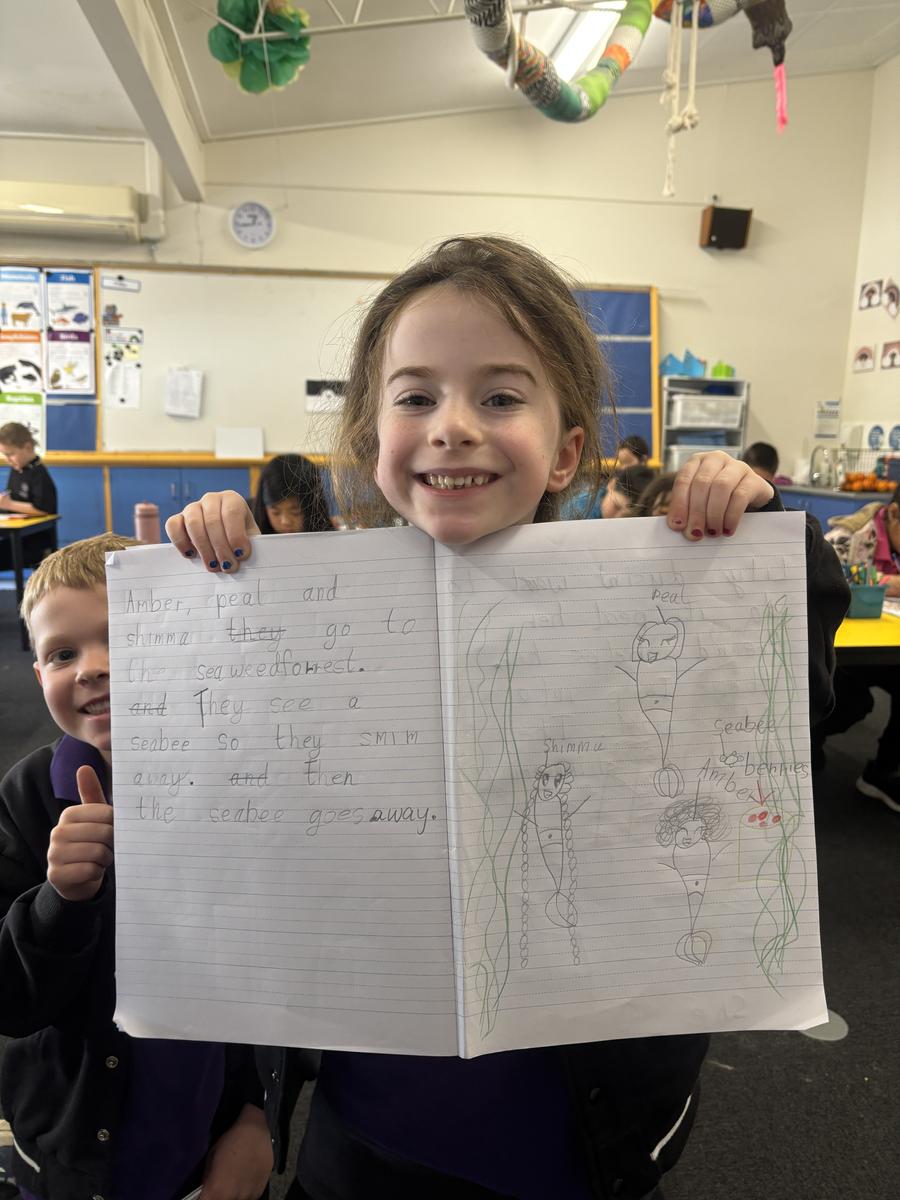 Amber, peal and
shimma they go to
the seaweedforrest.
and They see a
seabee so they smim
away. and then
the seabee goes away.
Peal
Shimma
seabee
Amber
berries